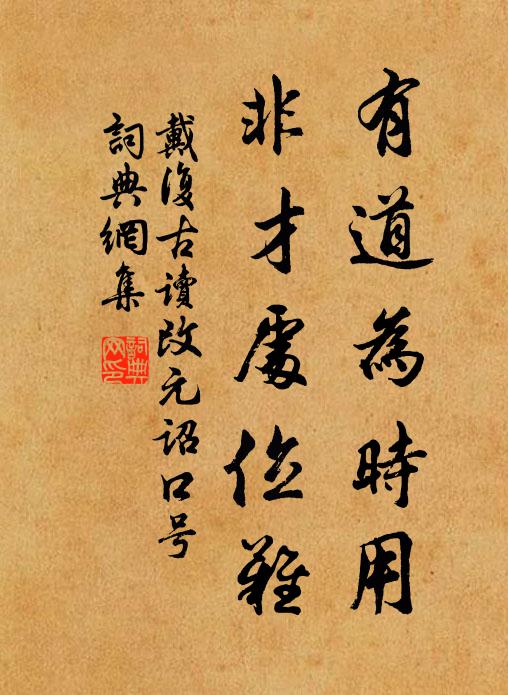 有道為時用
非才處位難
戴復古讀改元詔口号
詞典網集
詞典網印